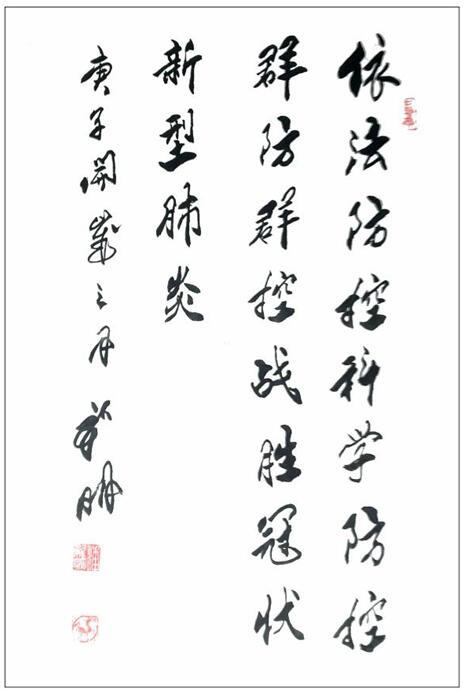 依法防控科学防控
群防群控战胜冠状
新型肺炎
庚子開歲之月